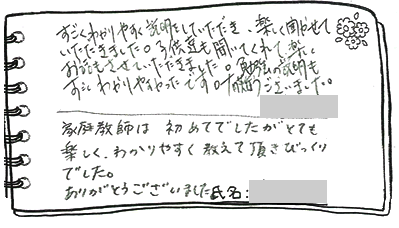 すごくわかりやすく説明をしていただき、楽しく聞かせて
いただきました。子供も聞いてくれて楽しく
お話もさせていただきました。勉強の説明も
すごくわかりやすかったです。ありがとうございました。
家庭教師は 初めてでしたがとても
楽しく、わかりやすく教えて頂きびっくり
でした。
ありがとうございました 氏名: